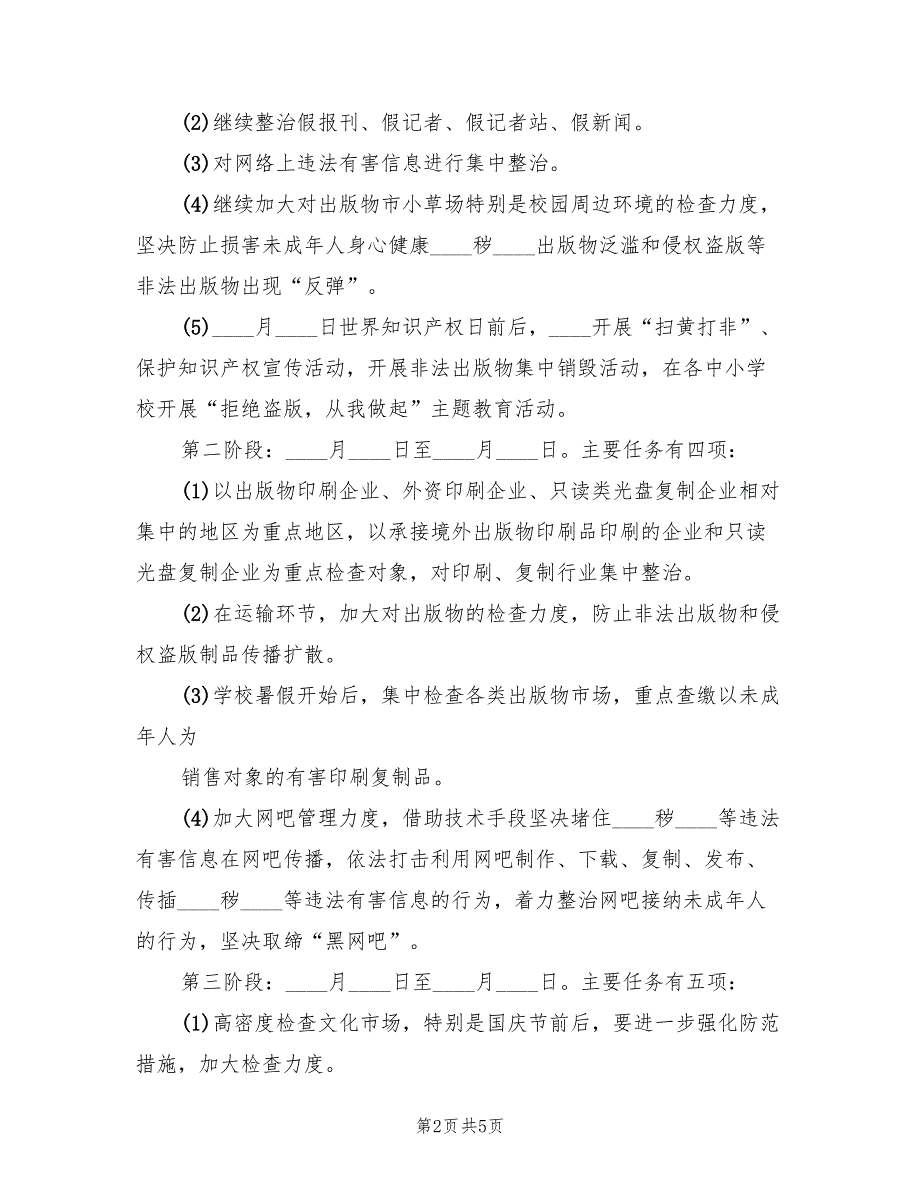 (2)继续整治假报刊、假记者、假记者站、假新闻。
(3)对网络上违法有害信息进行集中整治。
(4)继续加大对出版物市小草场特别是校园周边环境的检查力度，
坚决防止损害未成年人身心健康____秽____出版物泛滥和侵权盗版等
非法出版物出现“反弹”。
(5)____月____日世界知识产权日前后，____开展“扫黄打非”、
保护知识产权宣传活动，开展非法出版物集中销毁活动，在各中小学
校开展“拒绝盗版，从我做起”主题教育活动。
第二阶段：____月____日至____月____日。主要任务有四项：
(1)以出版物印刷企业、外资印刷企业、只读类光盘复制企业相对
集中的地区为重点地区，以承接境外出版物印刷品印刷的企业和只读
光盘复制企业为重点检查对象，对印刷、复制行业集中整治。
(2)在运输环节，加大对出版物的检查力度，防止非法出版物和侵
权盗版制品传播扩散。
(3)学校暑假开始后，集中检查各类出版物市场，重点查缴以未成
年人为
销售对象的有害印刷复制品。
(4)加大网吧管理力度，借助技术手段坚决堵住____秽____等违法
有害信息在网吧传播，依法打击利用网吧制作、下载、复制、发布、
传插____秽____等违法有害信息的行为，着力整治网吧接纳未成年人
的行为，坚决取缔“黑网吧”。
第三阶段：____月____日至____月____日。主要任务有五项：
(1)高密度检查文化市场，特别是国庆节前后，要进一步强化防范
措施，加大检查力度。
第2页共5页